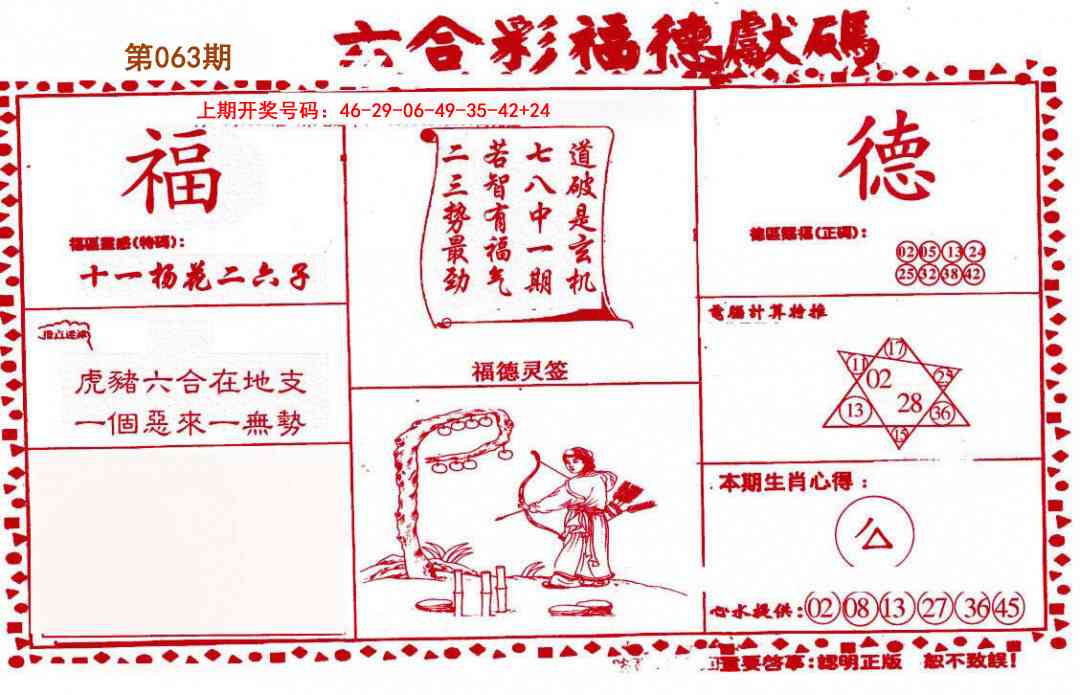 第063期
六合彩福德獻碼
上期开奖号码：46-29-06-49-35-42+24
福
福區靈感(特碼)：
十一杨花二六子
虎豬六合在地支
一個惡來一無勢
道破是玄机
七八中一期
若智有福气
二三势最劲
福德灵签
德
02 05 13 24
25 32 38 42
電腦計算特推
17
11
02
25
13
28
36
15
本期生肖心得：
心水提供：02 08 13 27 36 45
重要啓事：認明正版 恕不致誤！